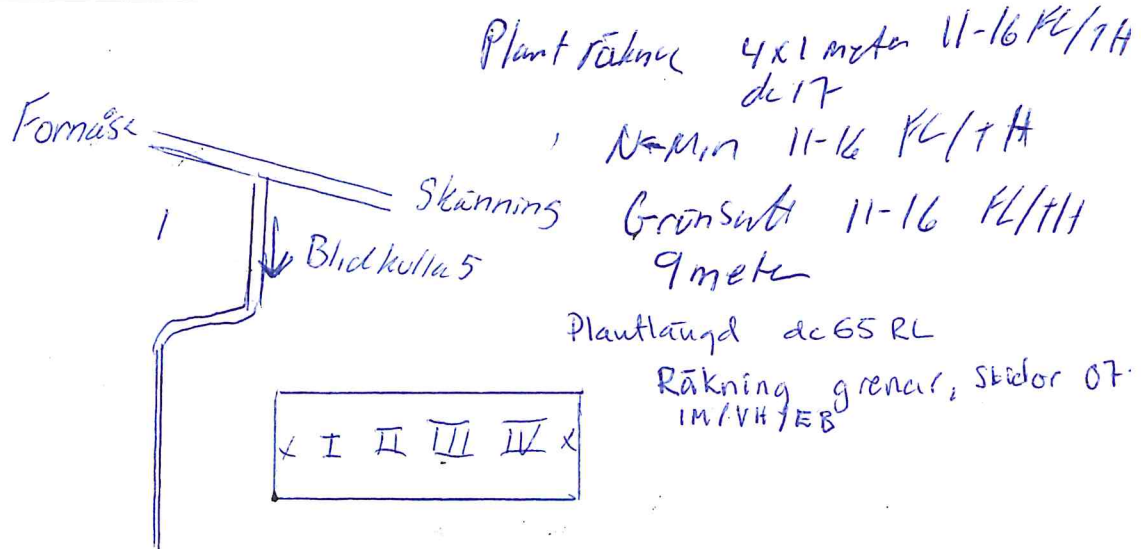 Planträkning 4x1 meter 11-16 FL/TH
dc 17
Fornåsa
N-Min 11-16 FL/TH
Skänning
Grönsnitt 11-16 FL/TH
Blidkulla 5
9 meter
Plantlängd dc 65 RL
Räkning grenar, skidor 07-
IM/VH/EB
x I II III IV x